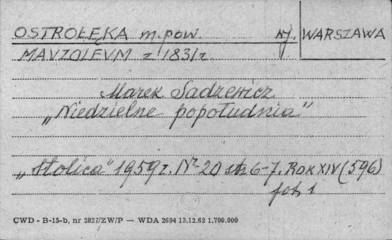 OSTROŁĘKA m. pow. WARSZAWA
MAUZOLEUM z 1831 r.
Marek Sadzewicz
„Niedzielne popołudnia"
„Stolica" 1959 r. Nr 20 str. 6-7. ROK XIV (596)
fot. 1
CWD - B-15-b, nr 2827/ZW/P — WDA 2694 13.12.62 1.700.000